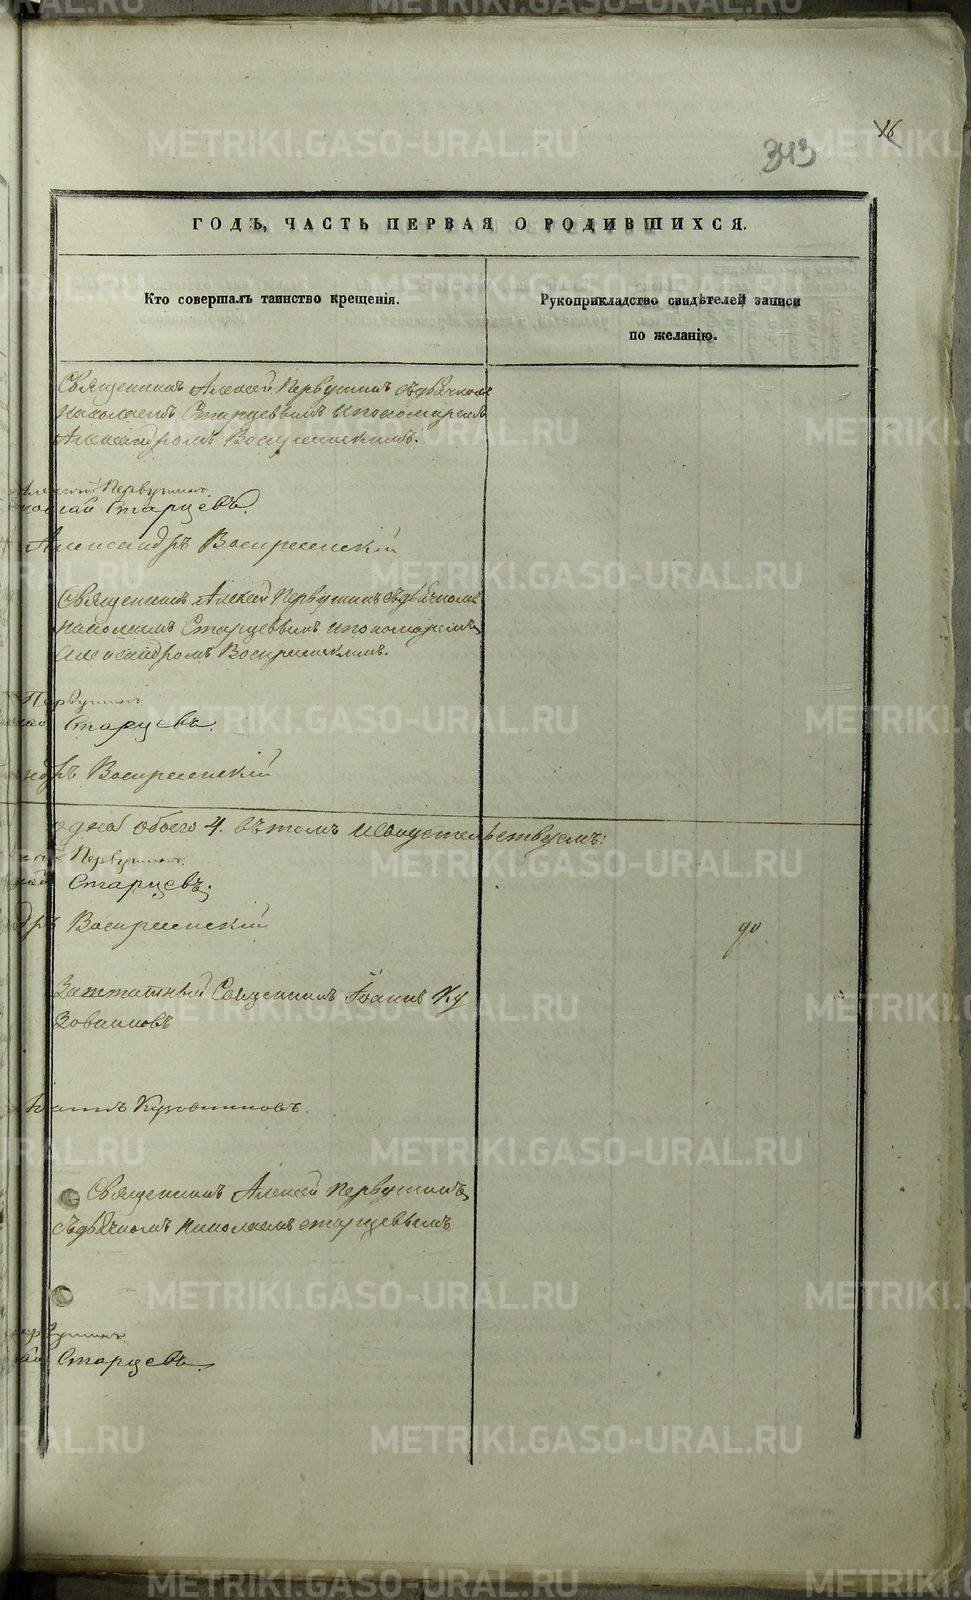 16
343
ГОДЪ, ЧАСТЬ ПЕРВАЯ О РОДИВШИХСЯ.
Кто совершалъ таинство крещенія.
Рукоприкладство свидѣтелей записи
по желанію.
Священникъ Алексѣй Первушинъ съ дьячкомъ
Николаемъ Старцевымъ и пономаремъ
Александромъ Воскресенскимъ.
Алексѣй Первушинъ
Старцевъ.
Александръ Воскресенскій
Священникъ Алексѣй Первушинъ съ дьячкомъ
Николаемъ Старцевымъ и пономаремъ
Александромъ Воскресенскимъ.
Первушинъ
Старцевъ.
Воскресенскій
одна обоего 4. въ томъ и свидѣтельствуемъ:
Первушинъ.
Старцевъ.
Воскресенскій
Заштатный Священникъ Іоаннъ Ку
зовниковъ
Іоаннъ Кузовниковъ.
Священникъ Алексѣй Первушинъ
съ дьячкомъ Николаемъ Старцевымъ
Первушинъ
Старцевъ.
METRIKI.GASO-URAL.RU